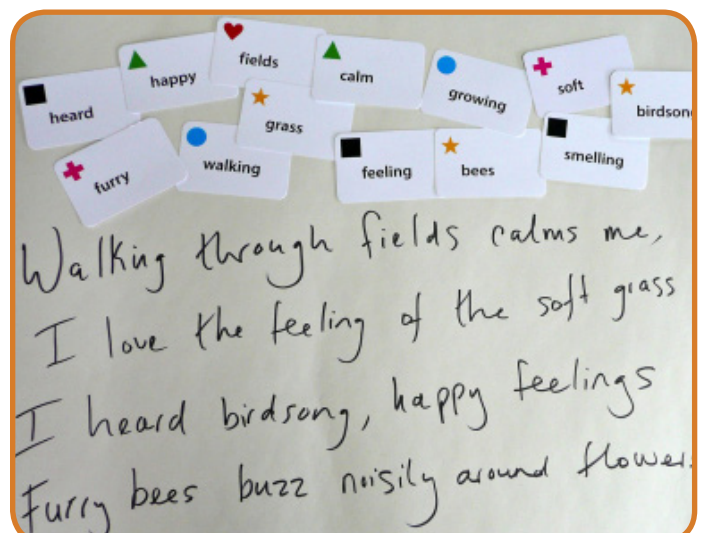 heard
happy
fields
calm
growing
soft
birdson
furry
walking
grass
feeling
bees
smelling
Walking through fields calms me,
I love the feeling of the soft grass
I heard birdsong, happy feelings
Furry bees buzz noisily around flower